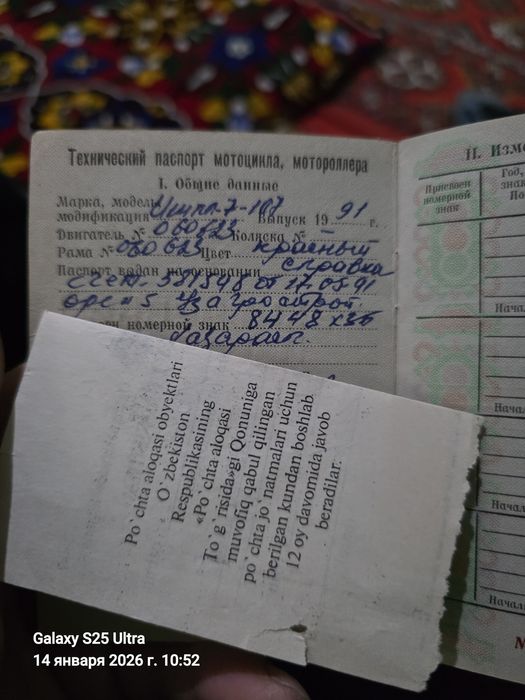 Технический паспорт мотоцикла, мотороллера
I. Общие данные
Марка, модель
модификация Ижпл-7-107 Выпуск 19 91 г.
Двигатель № Коляска № —
Рама № 060623 Цвет красный
Паспорт выдан на основании справка
счет. 581548 от 17.05.91
номерной знак 8448
Po`chta aloqasi obyektlari
O`zbekiston
Respublikasining
«Po`chta aloqasi
To`g`risida»gi Qonuniga
muvofiq qabul qilingan
po`chta jo`natmalari uchun
berilgan kundan boshlab
12 oy davomida javob
beradilar.
II. Изме
Присвоен
номерной
знак
Год,
зна
По
Нача
Начал
Начал
Начал
М
Galaxy S25 Ultra
14 января 2026 г. 10:52